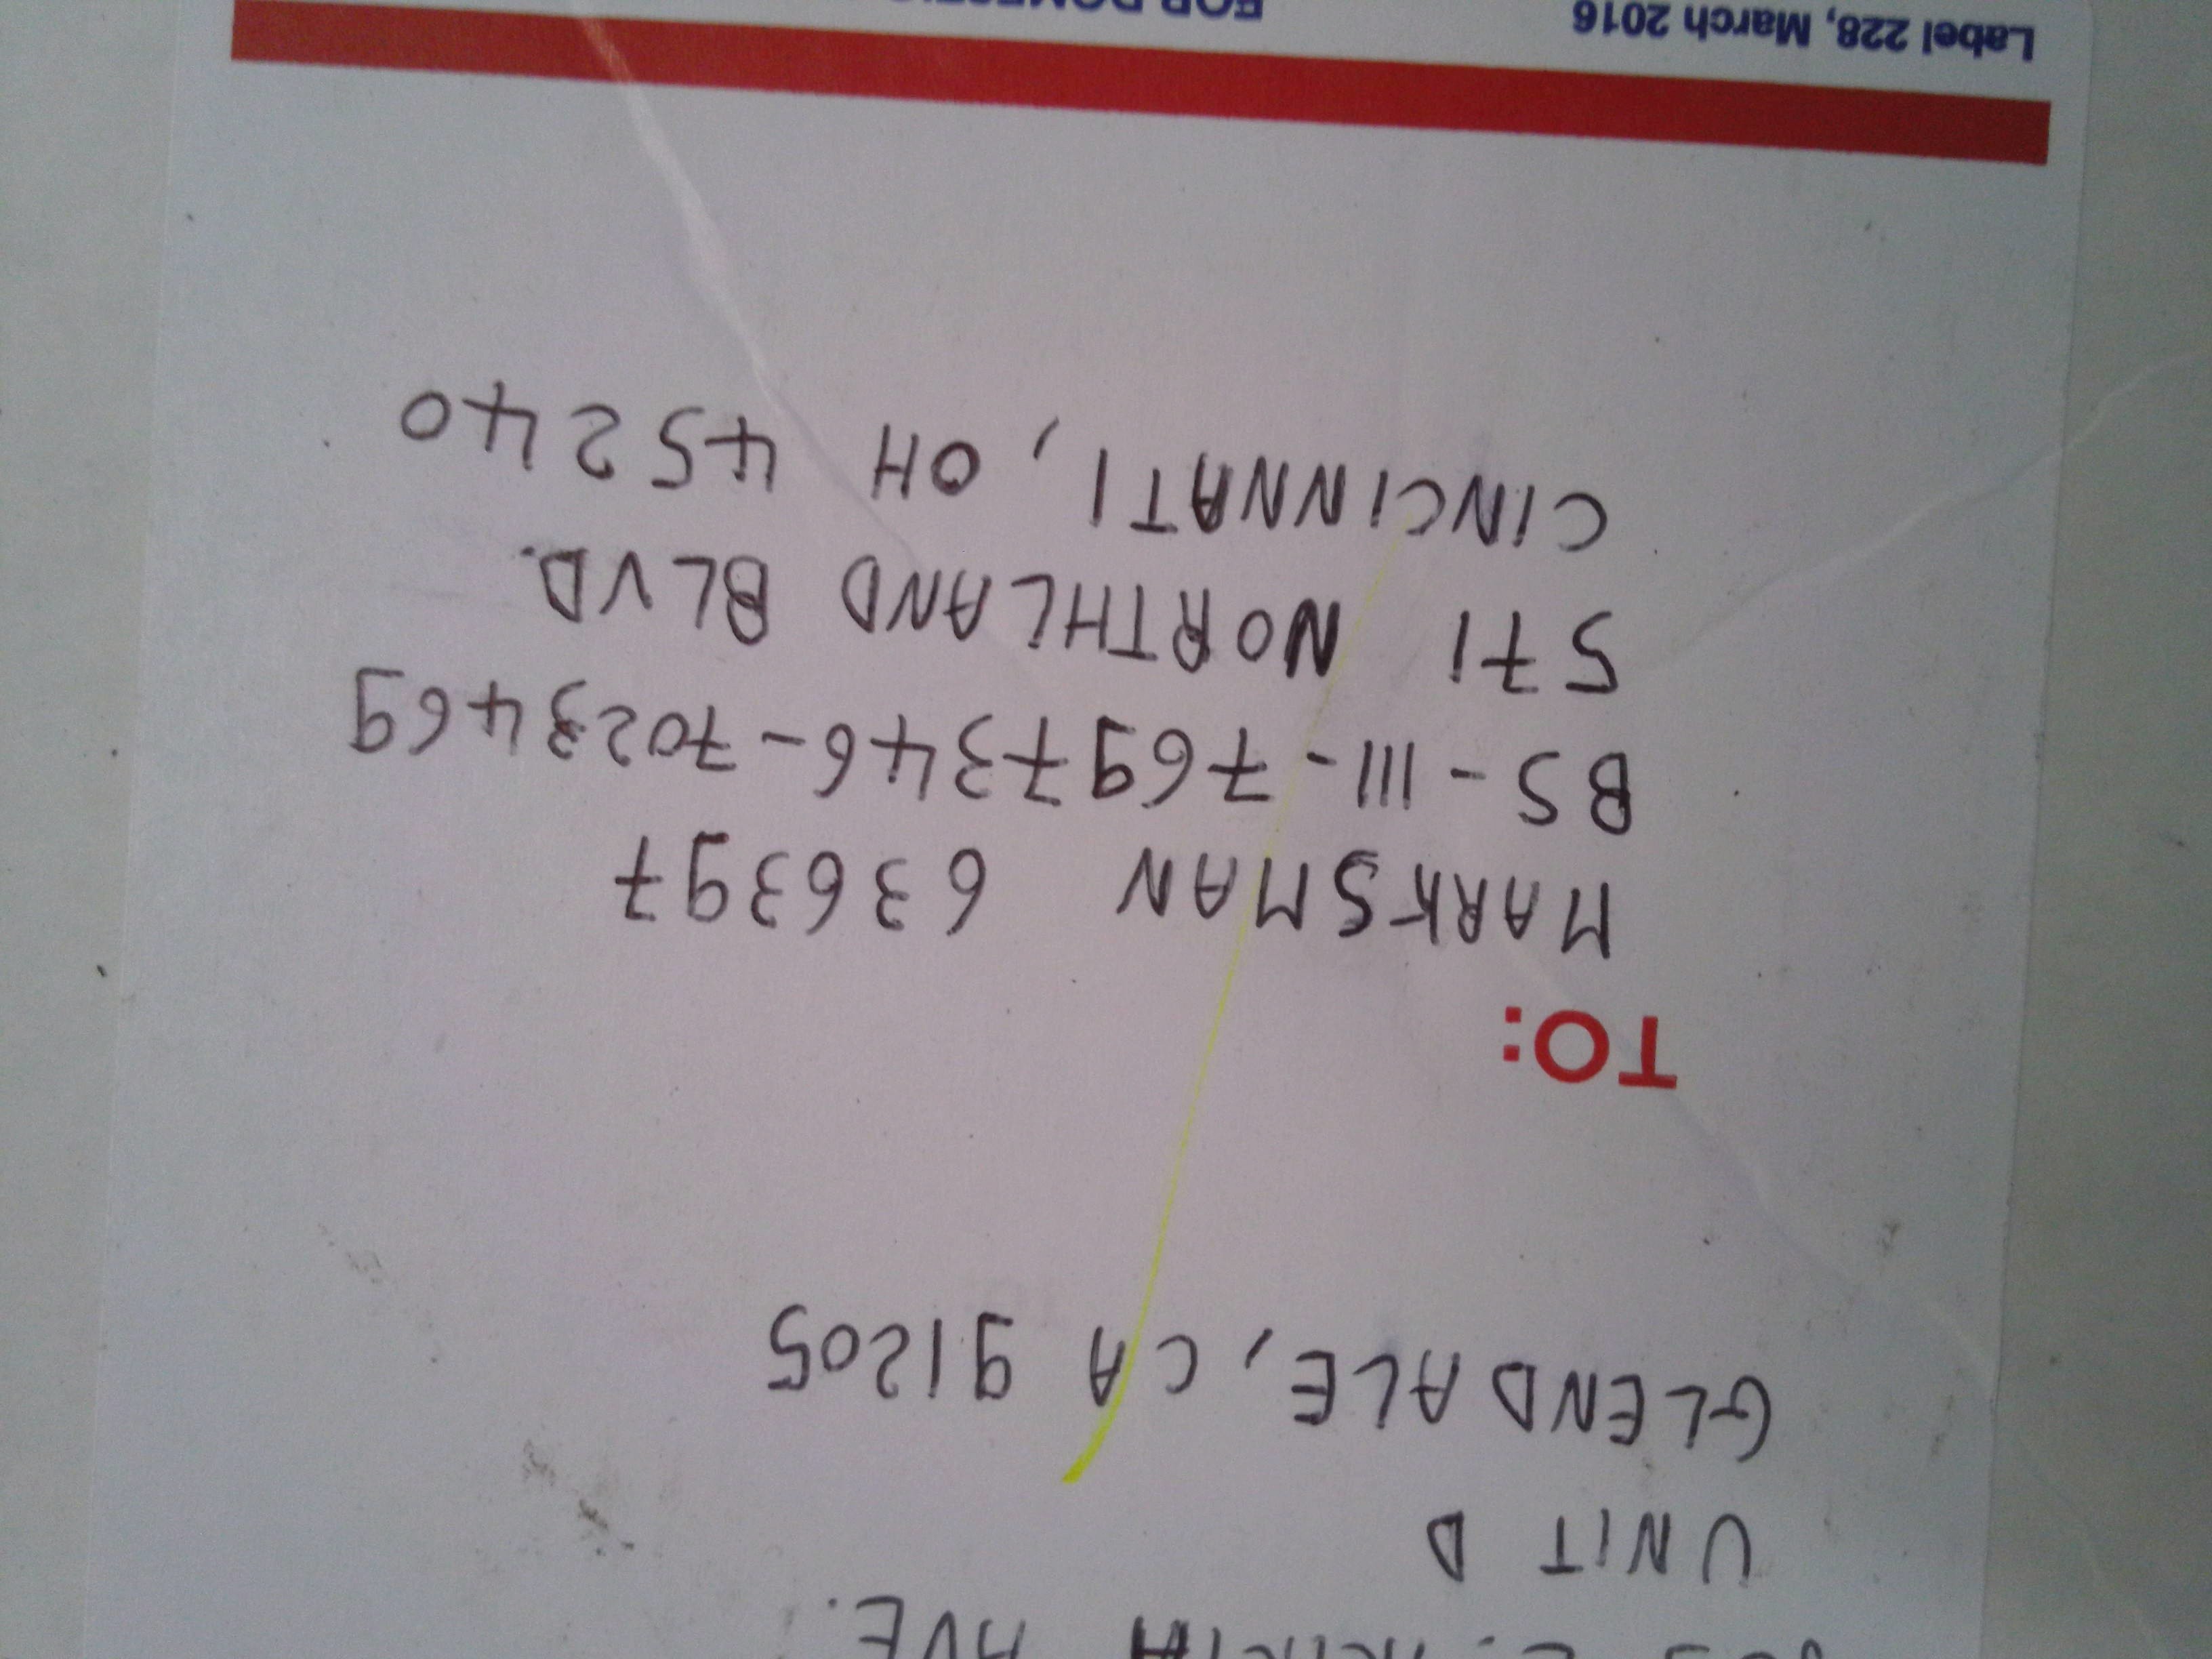 AVE.
UNIT D
GLENDALE, CA 91205
TO:
MARKSMAN 636397
BS-111-7697346-7023469
571 NORTHLAND BLVD.
CINCINNATI, OH 45240
Label 228, March 2016 FOR